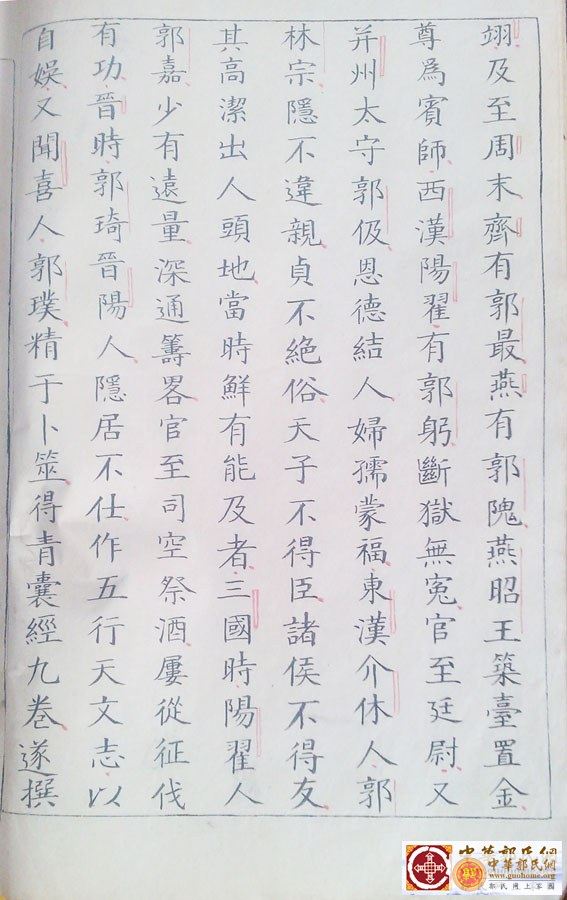 翊及至周末齊有郭最燕有郭隗燕昭王築臺置金
尊爲賓師西漢陽翟有郭躬斷獄無冤官至廷尉又
并州太守郭伋恩德結人婦孺蒙福東漢介休人郭
林宗隱不違親貞不絶俗天子不得臣諸侯不得友
其高潔出人頭地當時鮮有能及者三國時陽翟人
郭嘉少有遠量深通籌畧官至司空祭酒屢從征伐
有功晉時郭琦晉陽人隱居不仕作五行天文志以
自娛又聞喜人郭璞精于卜筮得青囊經九卷遂撰
中華郭氏網
中華郭氏網
www.guohome.org
郭氏網上家園